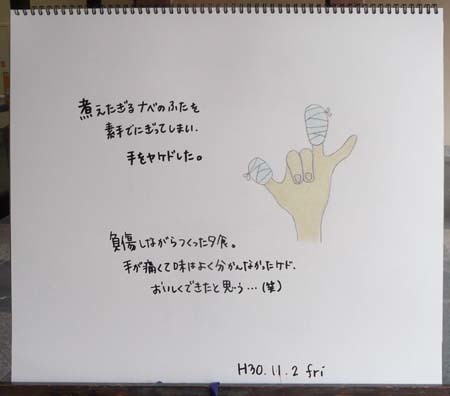 煮えたぎるナベのふたを
素手でにぎってしまい、
手をヤケドした。
負傷しながらつくった夕飯。
手が痛くて味はよく分かんなかったケド、
おいしくできたと思う…(笑)
H30.11.2 fri